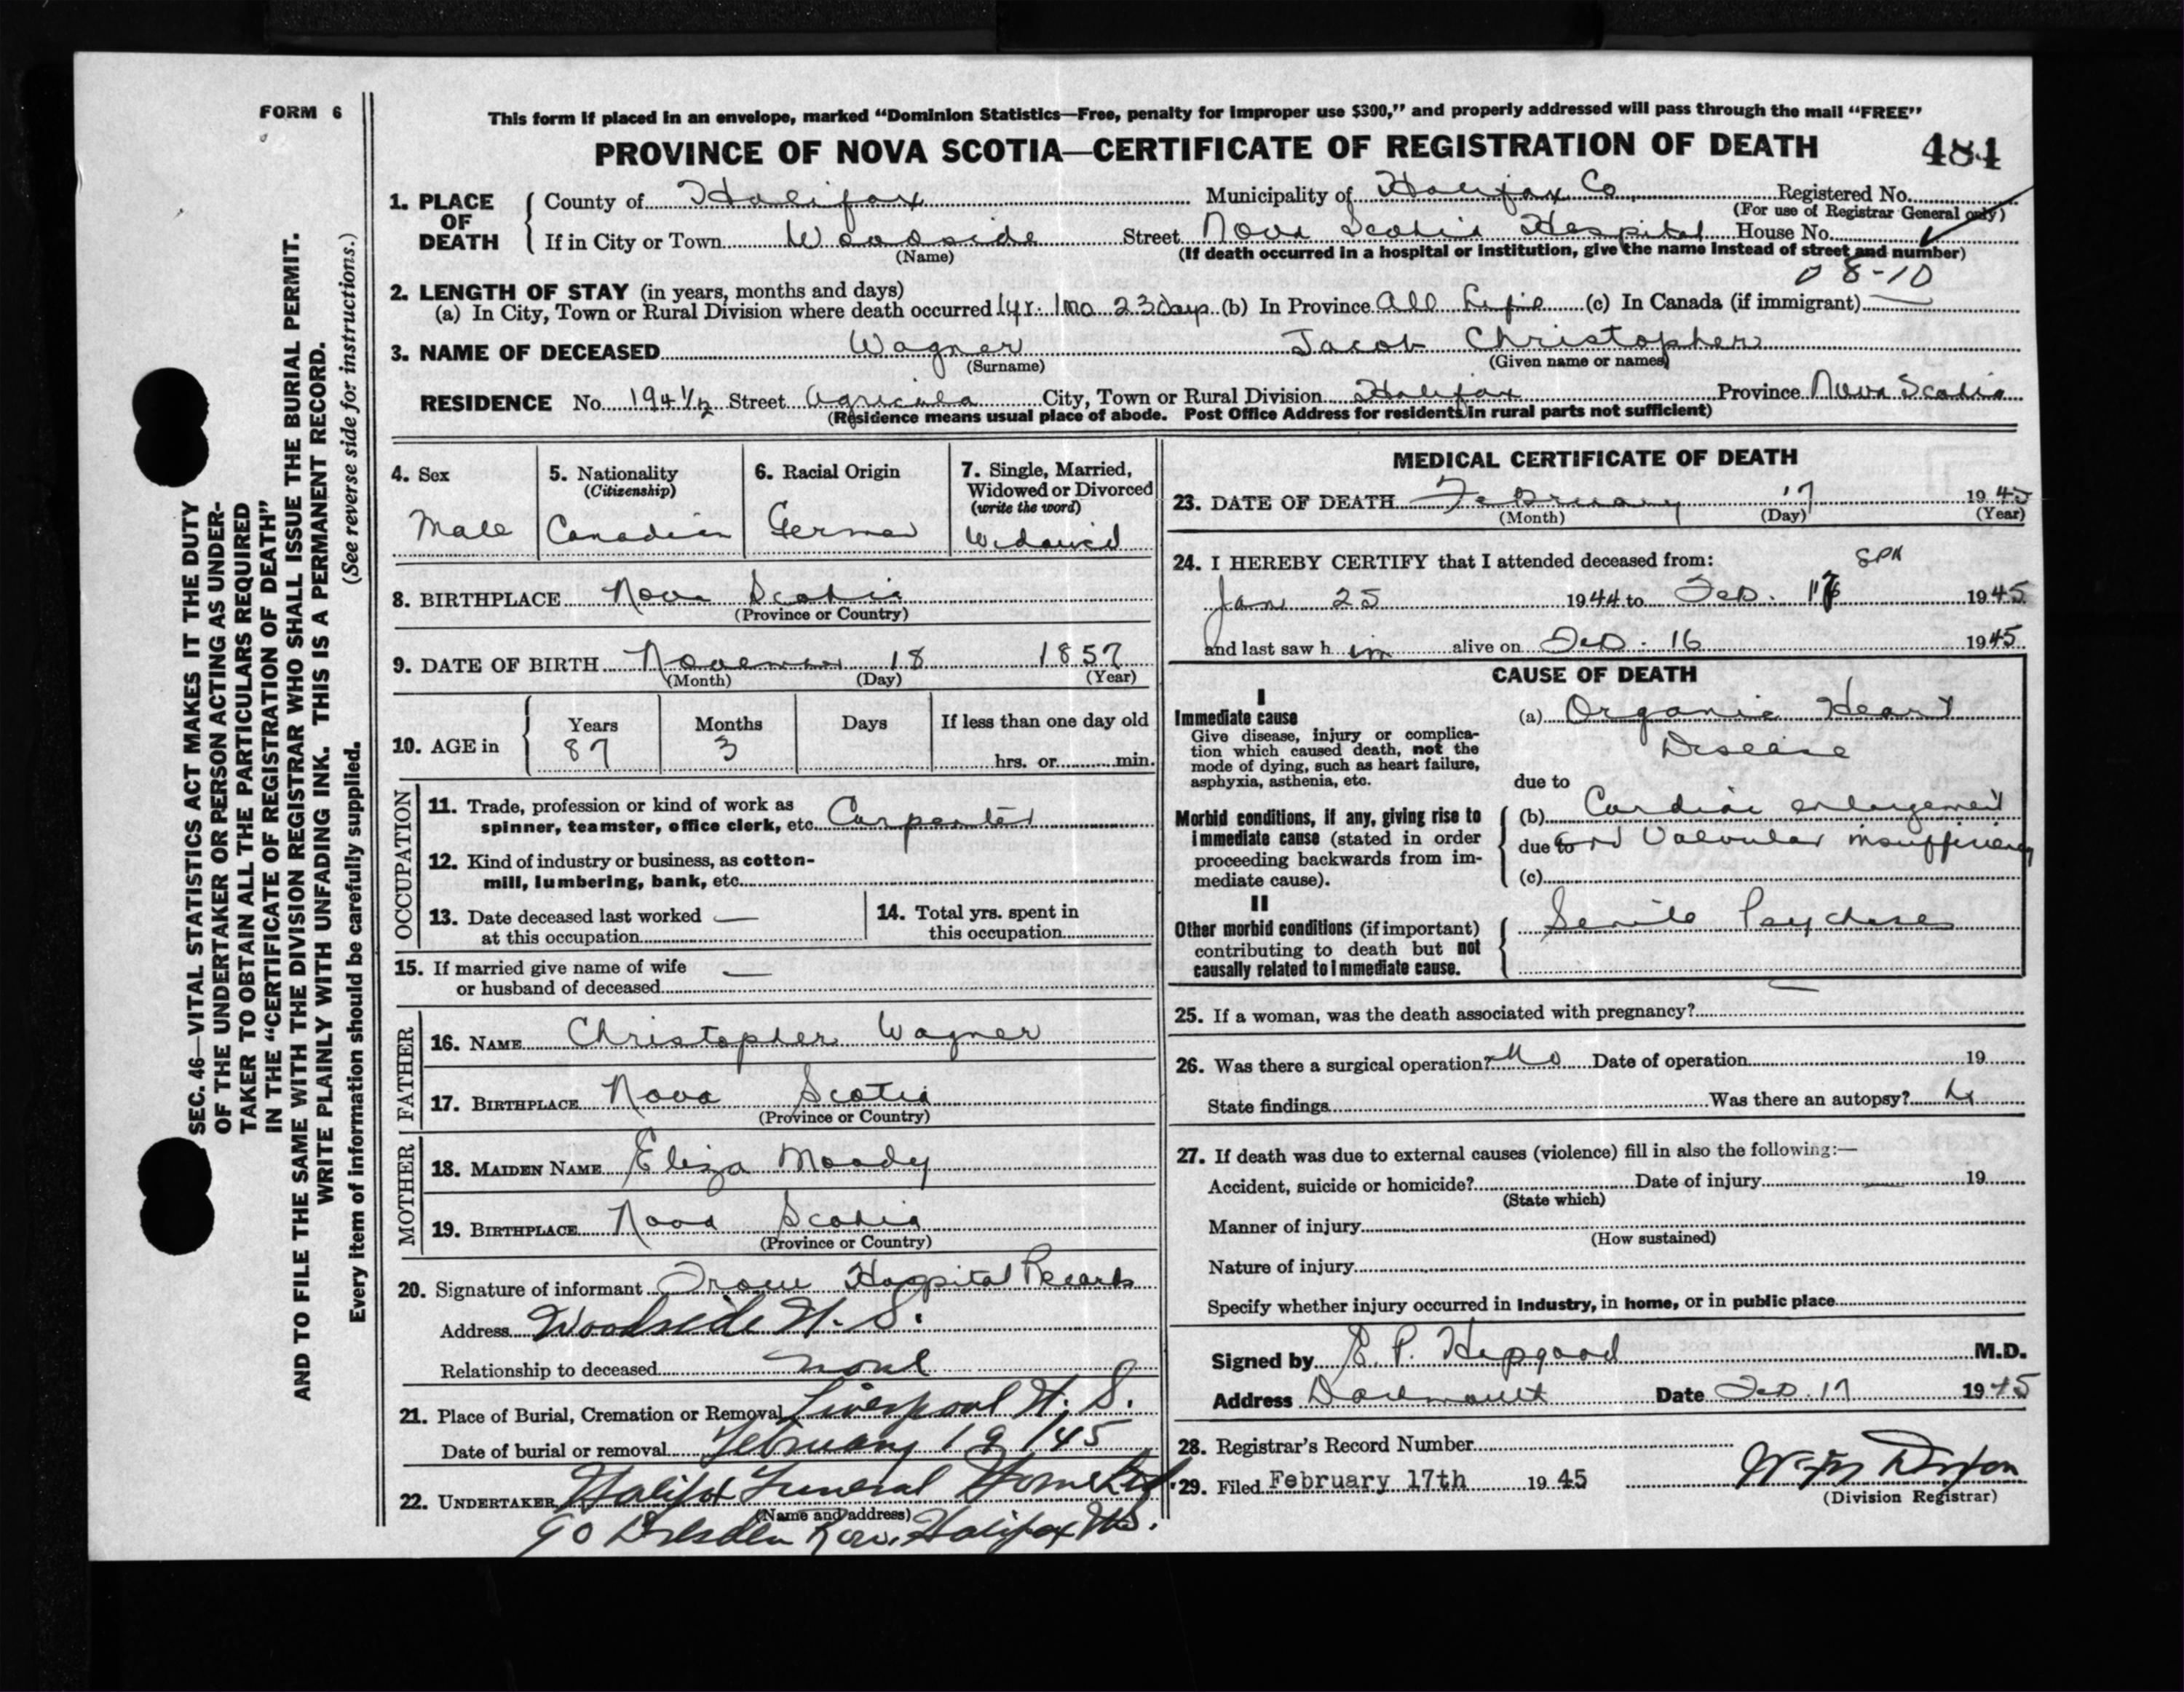 FORM 6
This form if placed in an envelope, marked "Dominion Statistics—Free, penalty for improper use $300," and properly addressed will pass through the mail "FREE"
PROVINCE OF NOVA SCOTIA—CERTIFICATE OF REGISTRATION OF DEATH 484
1. PLACE OF DEATH
County of Halifax Municipality of Halifax Co Registered No.
(For use of Registrar General only)
If in City or Town Woodside Street Nova Scotia Hospital House No.
(Name) (If death occurred in a hospital or institution, give the name instead of street and number)
08-10
2. LENGTH OF STAY (in years, months and days)
(a) In City, Town or Rural Division where death occurred 1 yr. 1 mo 23 days (b) In Province All Life (c) In Canada (if immigrant) —
3. NAME OF DECEASED Wagner Jacob Christopher
(Surname) (Given name or names)
RESIDENCE No. 194 1/2 Street Agricola City, Town or Rural Division Halifax Province Nova Scotia
(Residence means usual place of abode. Post Office Address for residents in rural parts not sufficient)
4. Sex
Male
5. Nationality
(Citizenship)
Canadian
6. Racial Origin
German
7. Single, Married,
Widowed or Divorced
(write the word)
Widowed
8. BIRTHPLACE Nova Scotia
(Province or Country)
9. DATE OF BIRTH November 18 1857
(Month) (Day) (Year)
10. AGE in
Years Months Days If less than one day old
87 3 hrs. or min.
OCCUPATION
11. Trade, profession or kind of work as
spinner, teamster, office clerk, etc. Carpenter
12. Kind of industry or business, as cotton-
mill, lumbering, bank, etc.
13. Date deceased last worked —
at this occupation
14. Total yrs. spent in
this occupation
15. If married give name of wife —
or husband of deceased
FATHER
16. NAME Christopher Wagner
17. BIRTHPLACE Nova Scotia
(Province or Country)
MOTHER
18. MAIDEN NAME Eliza Moody
19. BIRTHPLACE Nova Scotia
(Province or Country)
20. Signature of informant From Hospital Records
Address Woodside N. S.
Relationship to deceased none
21. Place of Burial, Cremation or Removal Liverpool N. S.
Date of burial or removal February 19/45
22. UNDERTAKER Halifax Funeral Home Ltd
(Name and address)
90 Dresden Row, Halifax N.S.
MEDICAL CERTIFICATE OF DEATH
23. DATE OF DEATH February 17 1945
(Month) (Day) (Year)
24. I HEREBY CERTIFY that I attended deceased from: EPH
Jan 25 1944 to Feb. 17 1945
and last saw him alive on Feb. 16 1945
CAUSE OF DEATH
I
Immediate cause
Give disease, injury or complica-
tion which caused death, not the
mode of dying, such as heart failure,
asphyxia, asthenia, etc.
(a) Organic Heart
Disease
due to
Morbid conditions, if any, giving rise to
immediate cause (stated in order
proceeding backwards from im-
mediate cause).
(b) Cardiac enlargement
due to and Valvular insufficiency
(c)
II
Other morbid conditions (if important)
contributing to death but not
causally related to immediate cause.
Senile Psychosis
25. If a woman, was the death associated with pregnancy? —
26. Was there a surgical operation? No Date of operation 19
State findings Was there an autopsy?
27. If death was due to external causes (violence) fill in also the following:—
Accident, suicide or homicide? Date of injury — 19
(State which)
Manner of injury
(How sustained)
Nature of injury
Specify whether injury occurred in industry, in home, or in public place
Signed by E. P. Hopgood M.D.
Address Dartmouth Date Feb. 17 1945
28. Registrar's Record Number
29. Filed February 17th 1945
(Division Registrar)
SEC. 46—VITAL STATISTICS ACT MAKES IT THE DUTY
OF THE UNDERTAKER OR PERSON ACTING AS UNDER-
TAKER TO OBTAIN ALL THE PARTICULARS REQUIRED
IN THE "CERTIFICATE OF REGISTRATION OF DEATH"
AND TO FILE THE SAME WITH THE DIVISION REGISTRAR WHO SHALL ISSUE THE BURIAL PERMIT.
WRITE PLAINLY WITH UNFADING INK. THIS IS A PERMANENT RECORD.
(See reverse side for instructions.)
Every item of information should be carefully supplied.